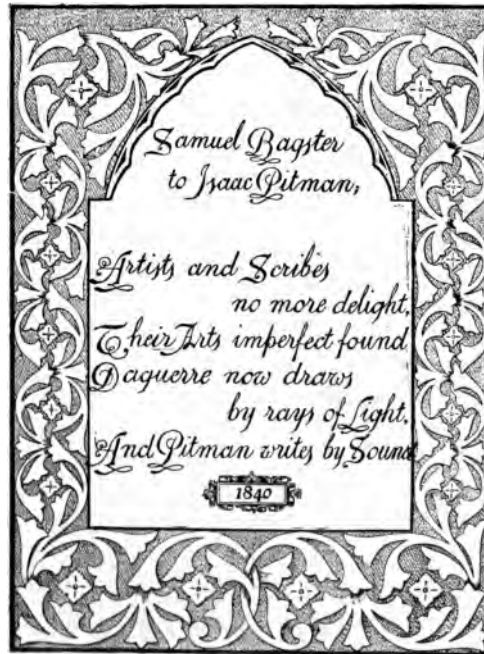 Samuel Bagster
to Isaac Pitman,
Artists and Scribes
no more delight,
Their Arts imperfect found
Daguerre now draws
by rays of Light,
And Pitman writes by Sound
1840